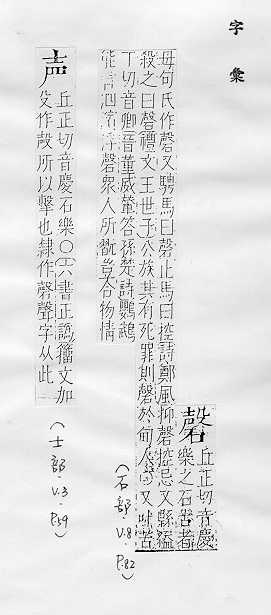 字彙
磬
丘正切音慶
樂之石器者
毋句氏作磬又騁馬曰磬止馬曰控詩鄭風抑磬控忌又縣縊
殺之曰磬禮文王世子公族其有死罪則磬於甸人 又 苦
丁切音卿晉董威輦答孫楚詩鸚鵡
能言泗濱浮磬衆人所翫豈合物情
(石部.V.8 P.82)
声
丘正切音慶石樂○六書正譌籀文加
殳作殸所以擊也隸作磬聲字从此
(士部.V.3 P.59)